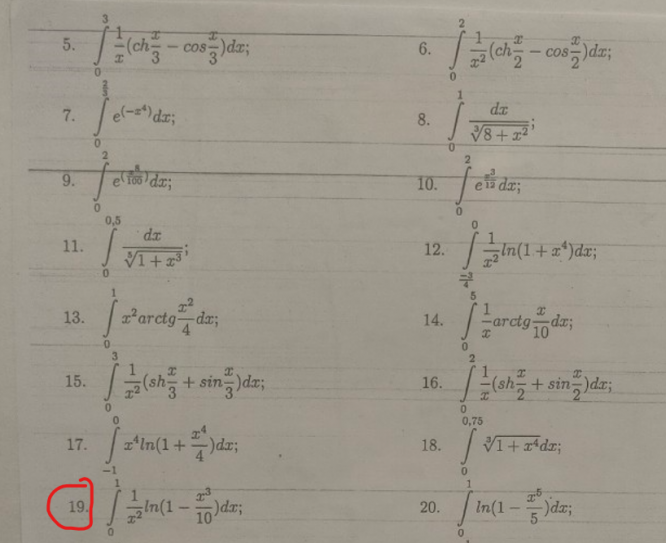 5. ∫₀³ 1/x (ch x/3 − cos x/3)dx; 6. ∫₀² 1/x² (ch x/2 − cos x/2)dx;
7. ∫₀^(2/3) e^(−x⁴) dx; 8. ∫₀¹ dx/∛(8 + x²);
9. ∫₀² e^(x⁸/100) dx; 10. ∫₀² e^(x³/12) dx;
11. ∫₀^(0,5) dx/⁵√(1 + x³); 12. ∫_(−3/4)^0 1/x² ln(1 + x⁴)dx;
13. ∫₀¹ x² arctg x²/4 dx; 14. ∫₀⁵ 1/x arctg x/10 dx;
15. ∫₀³ 1/x² (sh x/3 + sin x/3)dx; 16. ∫₀² 1/x (sh x/2 + sin x/2)dx;
17. ∫₋₁⁰ x⁴ ln(1 + x⁴/4)dx; 18. ∫₀^(0,75) ∛(1 + x⁴)dx;
19. ∫₀¹ 1/x² ln(1 − x³/10)dx; 20. ∫₀¹ ln(1 − x⁵/5)dx;